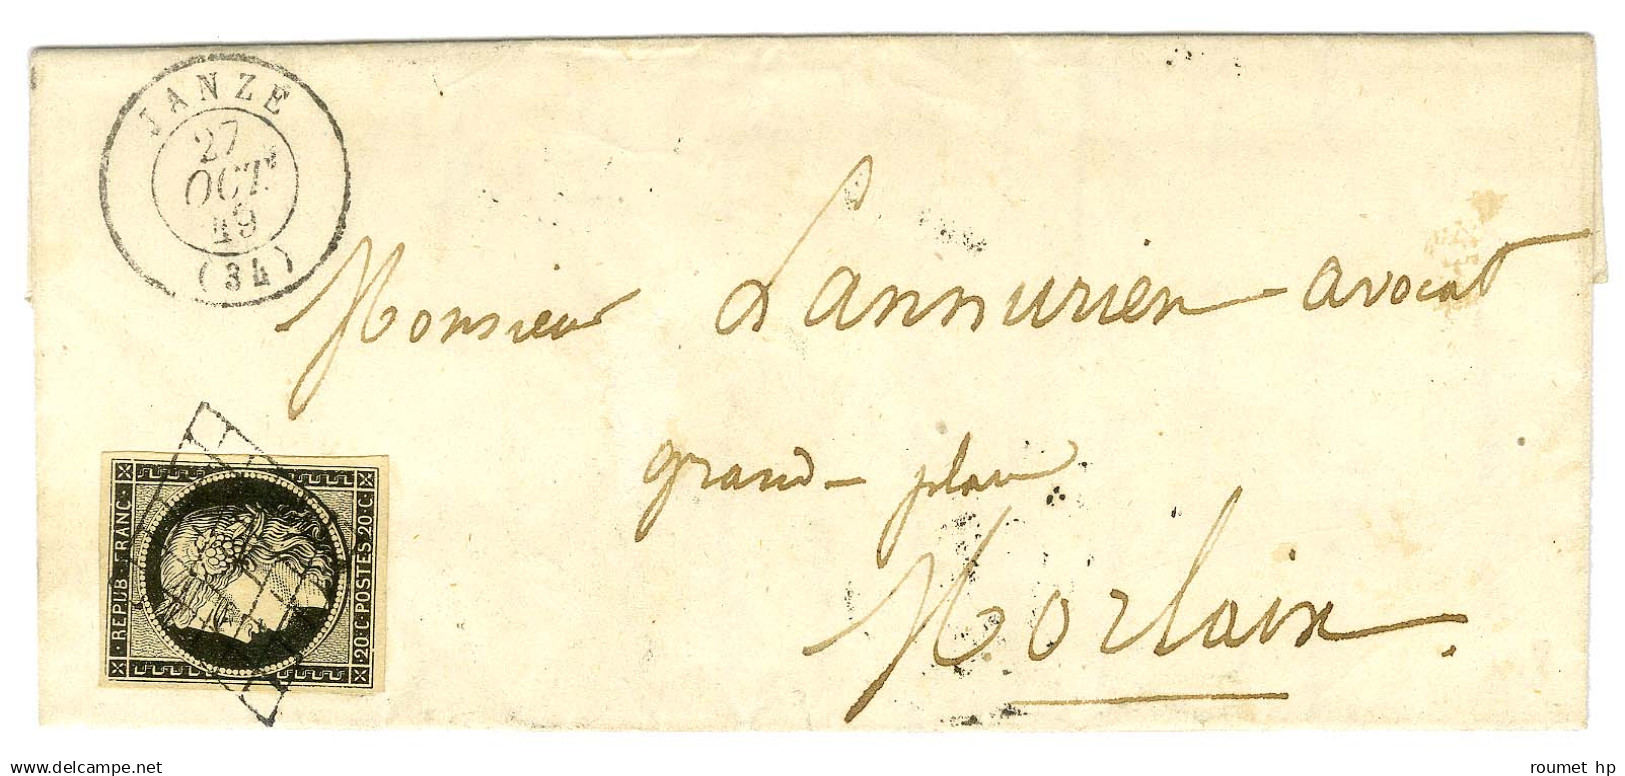 JANZE
27
OCT.
49
(34)
Monsieur Lannurien avocat
grand-place
Morlaix.
REPUB. FRANC.
20.C.POSTES.20.C
www.delcampe.net
roumet hp